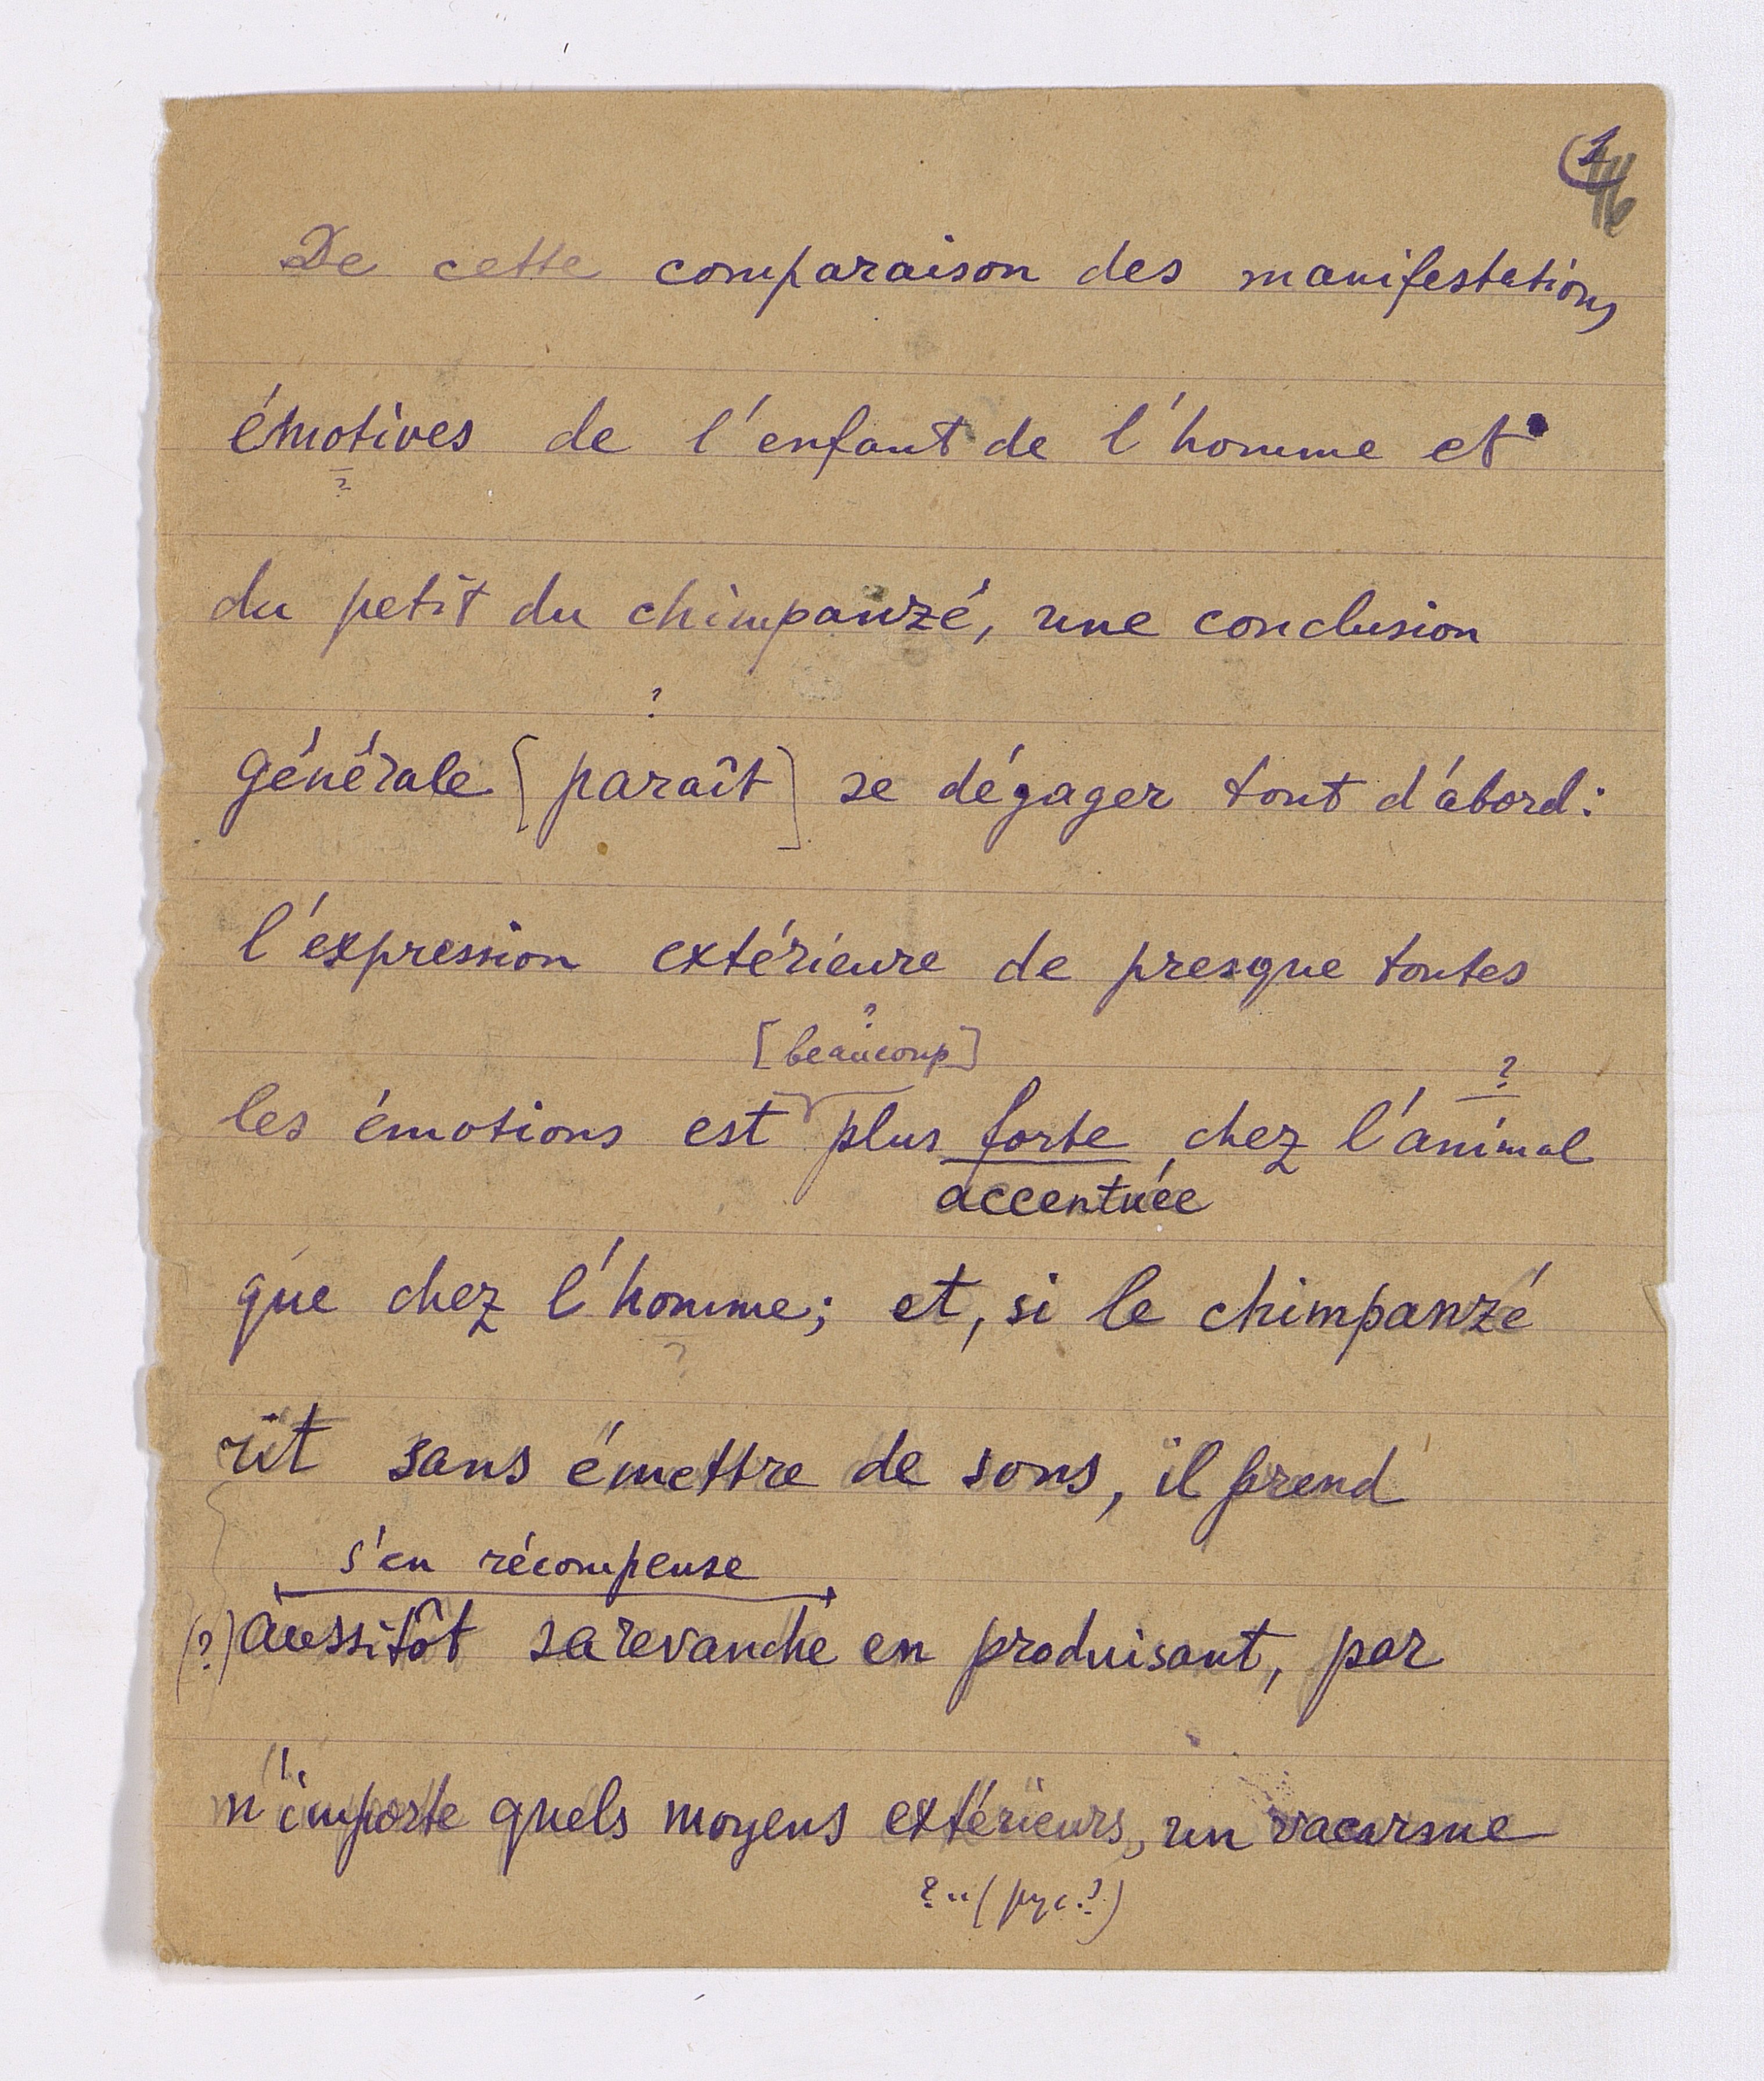 1
De cette comparaison des manifestations
émotives de l'enfant de l'homme et
?
du petit du chimpanzé, une conclusion
?
générale [paraît] se dégager tout d'abord:
l'expression extérieure de presque toutes
?
[beaucoup]
?
les émotions est plus forte chez l'animal
accentuée
que chez l'homme; et, si le chimpanzé
?
rit sans émettre de sons, il prend
s'en récompense
(?) aussitôt sa revanche en produisant, par
n'importe quels moyens extérieurs, un vacarme
?..(рус.?)